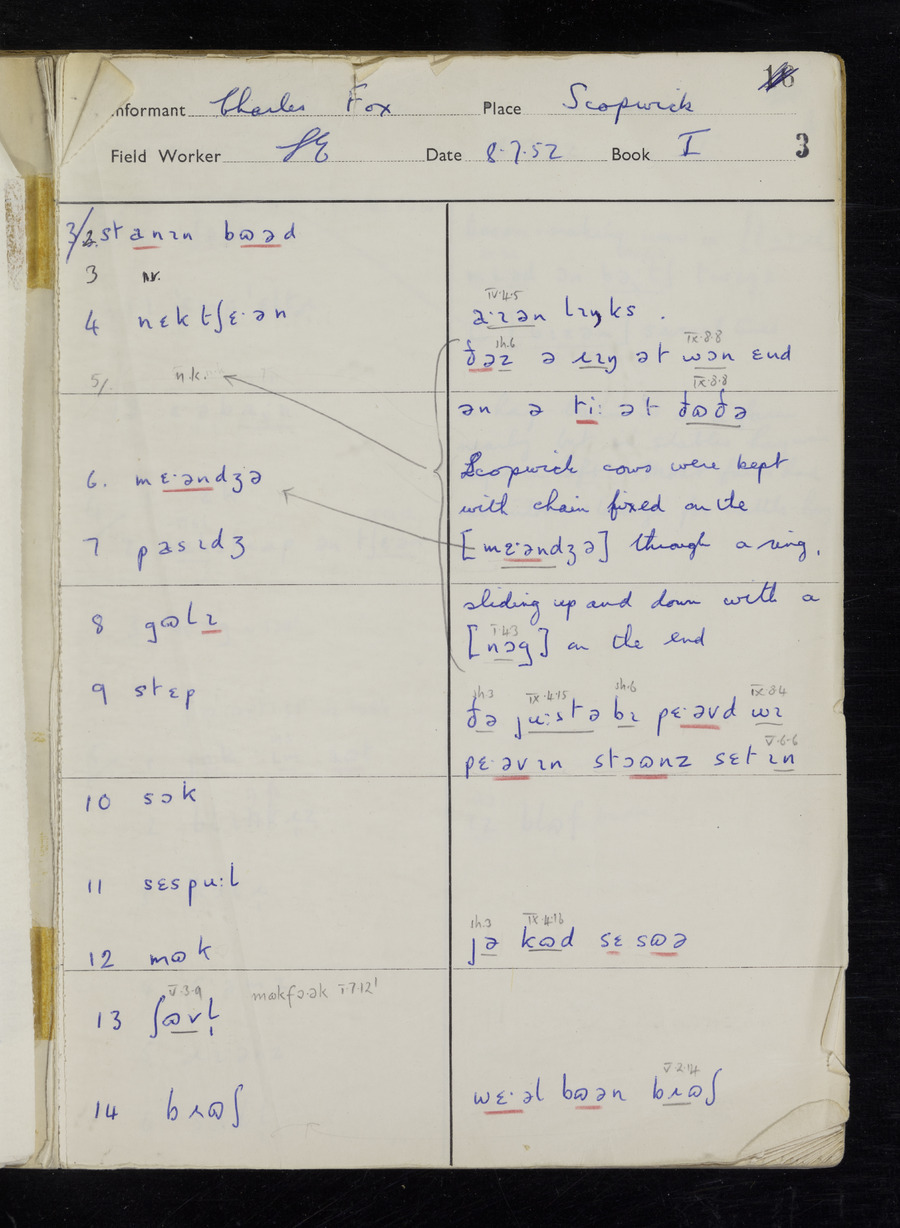 Informant Charles Fox Place Scopwick
Field Worker SE Date 8.7.52 Book I 3
3/2. stanɪn bɷəd
3 nr.
4 nɛktʃɛ·ən
IV.4.5
a·ɪən lɪŋks.
sh.6 IX.8.8
ðəz ə ɹɪŋ ət wɔn ɛnd
5/. n.k.
IX.8.8
ən ə ti: ət ðɷðə
Scopwick cows were kept
6. mɛ·əndʒə
with chain fixed on the
7 pasɪdʒ
[mɛ·əndʒə] through a ring,
sliding up and down with a
8 gɷlɪ
I.4.3
[nɔg] on the end
9 stɛp
sh.3 IX.4.15 sh.6 IX.3.4
ðə ju:stə bɪ pɛ·əvd wɪ
V.6.6
pɛ·əvɪn stɔɷnz sɛt ɪn
10 sɔk
11 sɛspu:l
sh.3 IX.4.16
12 mɷk
jə kɷd sɛ sɷə
V.3.9 mɷkfɔ·ək I.7.12'
13 ʃɷvl̩
V.2.14
14 bɹɷʃ
wɛ·əl bɷən bɹɷʃ